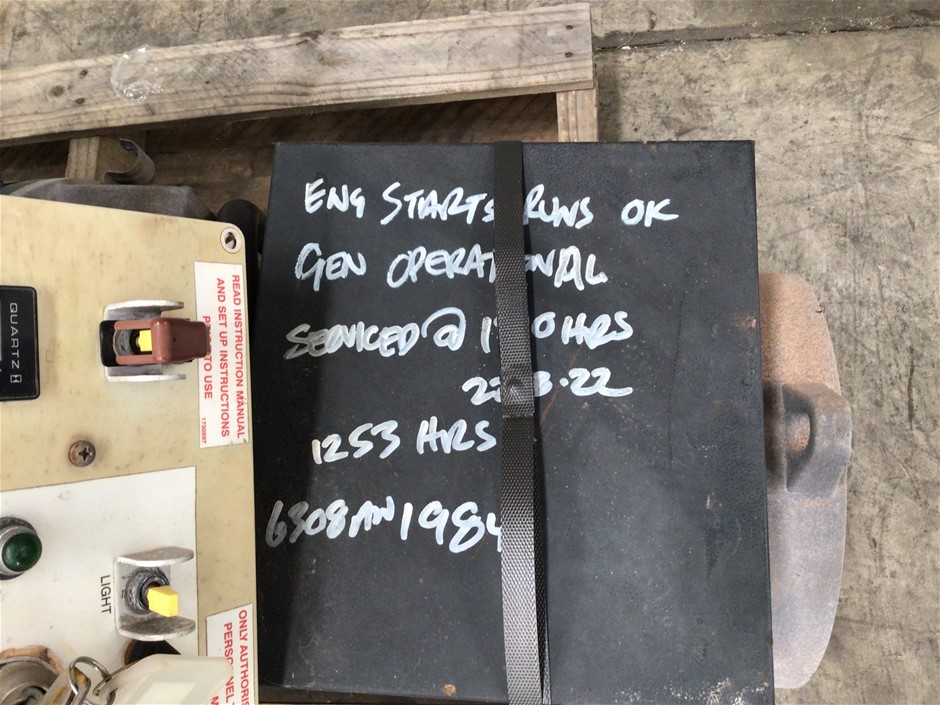 ENG STARTS RUNS OK
GEN OPERATIONAL
SERVICED @ HRS
1253 HRS
6308AW 1984
QUARTZ
READ INSTRUCTION MANUAL
AND SET UP INSTRUCTIONS
TO USE
LIGHT
ONLY AUTHORIS